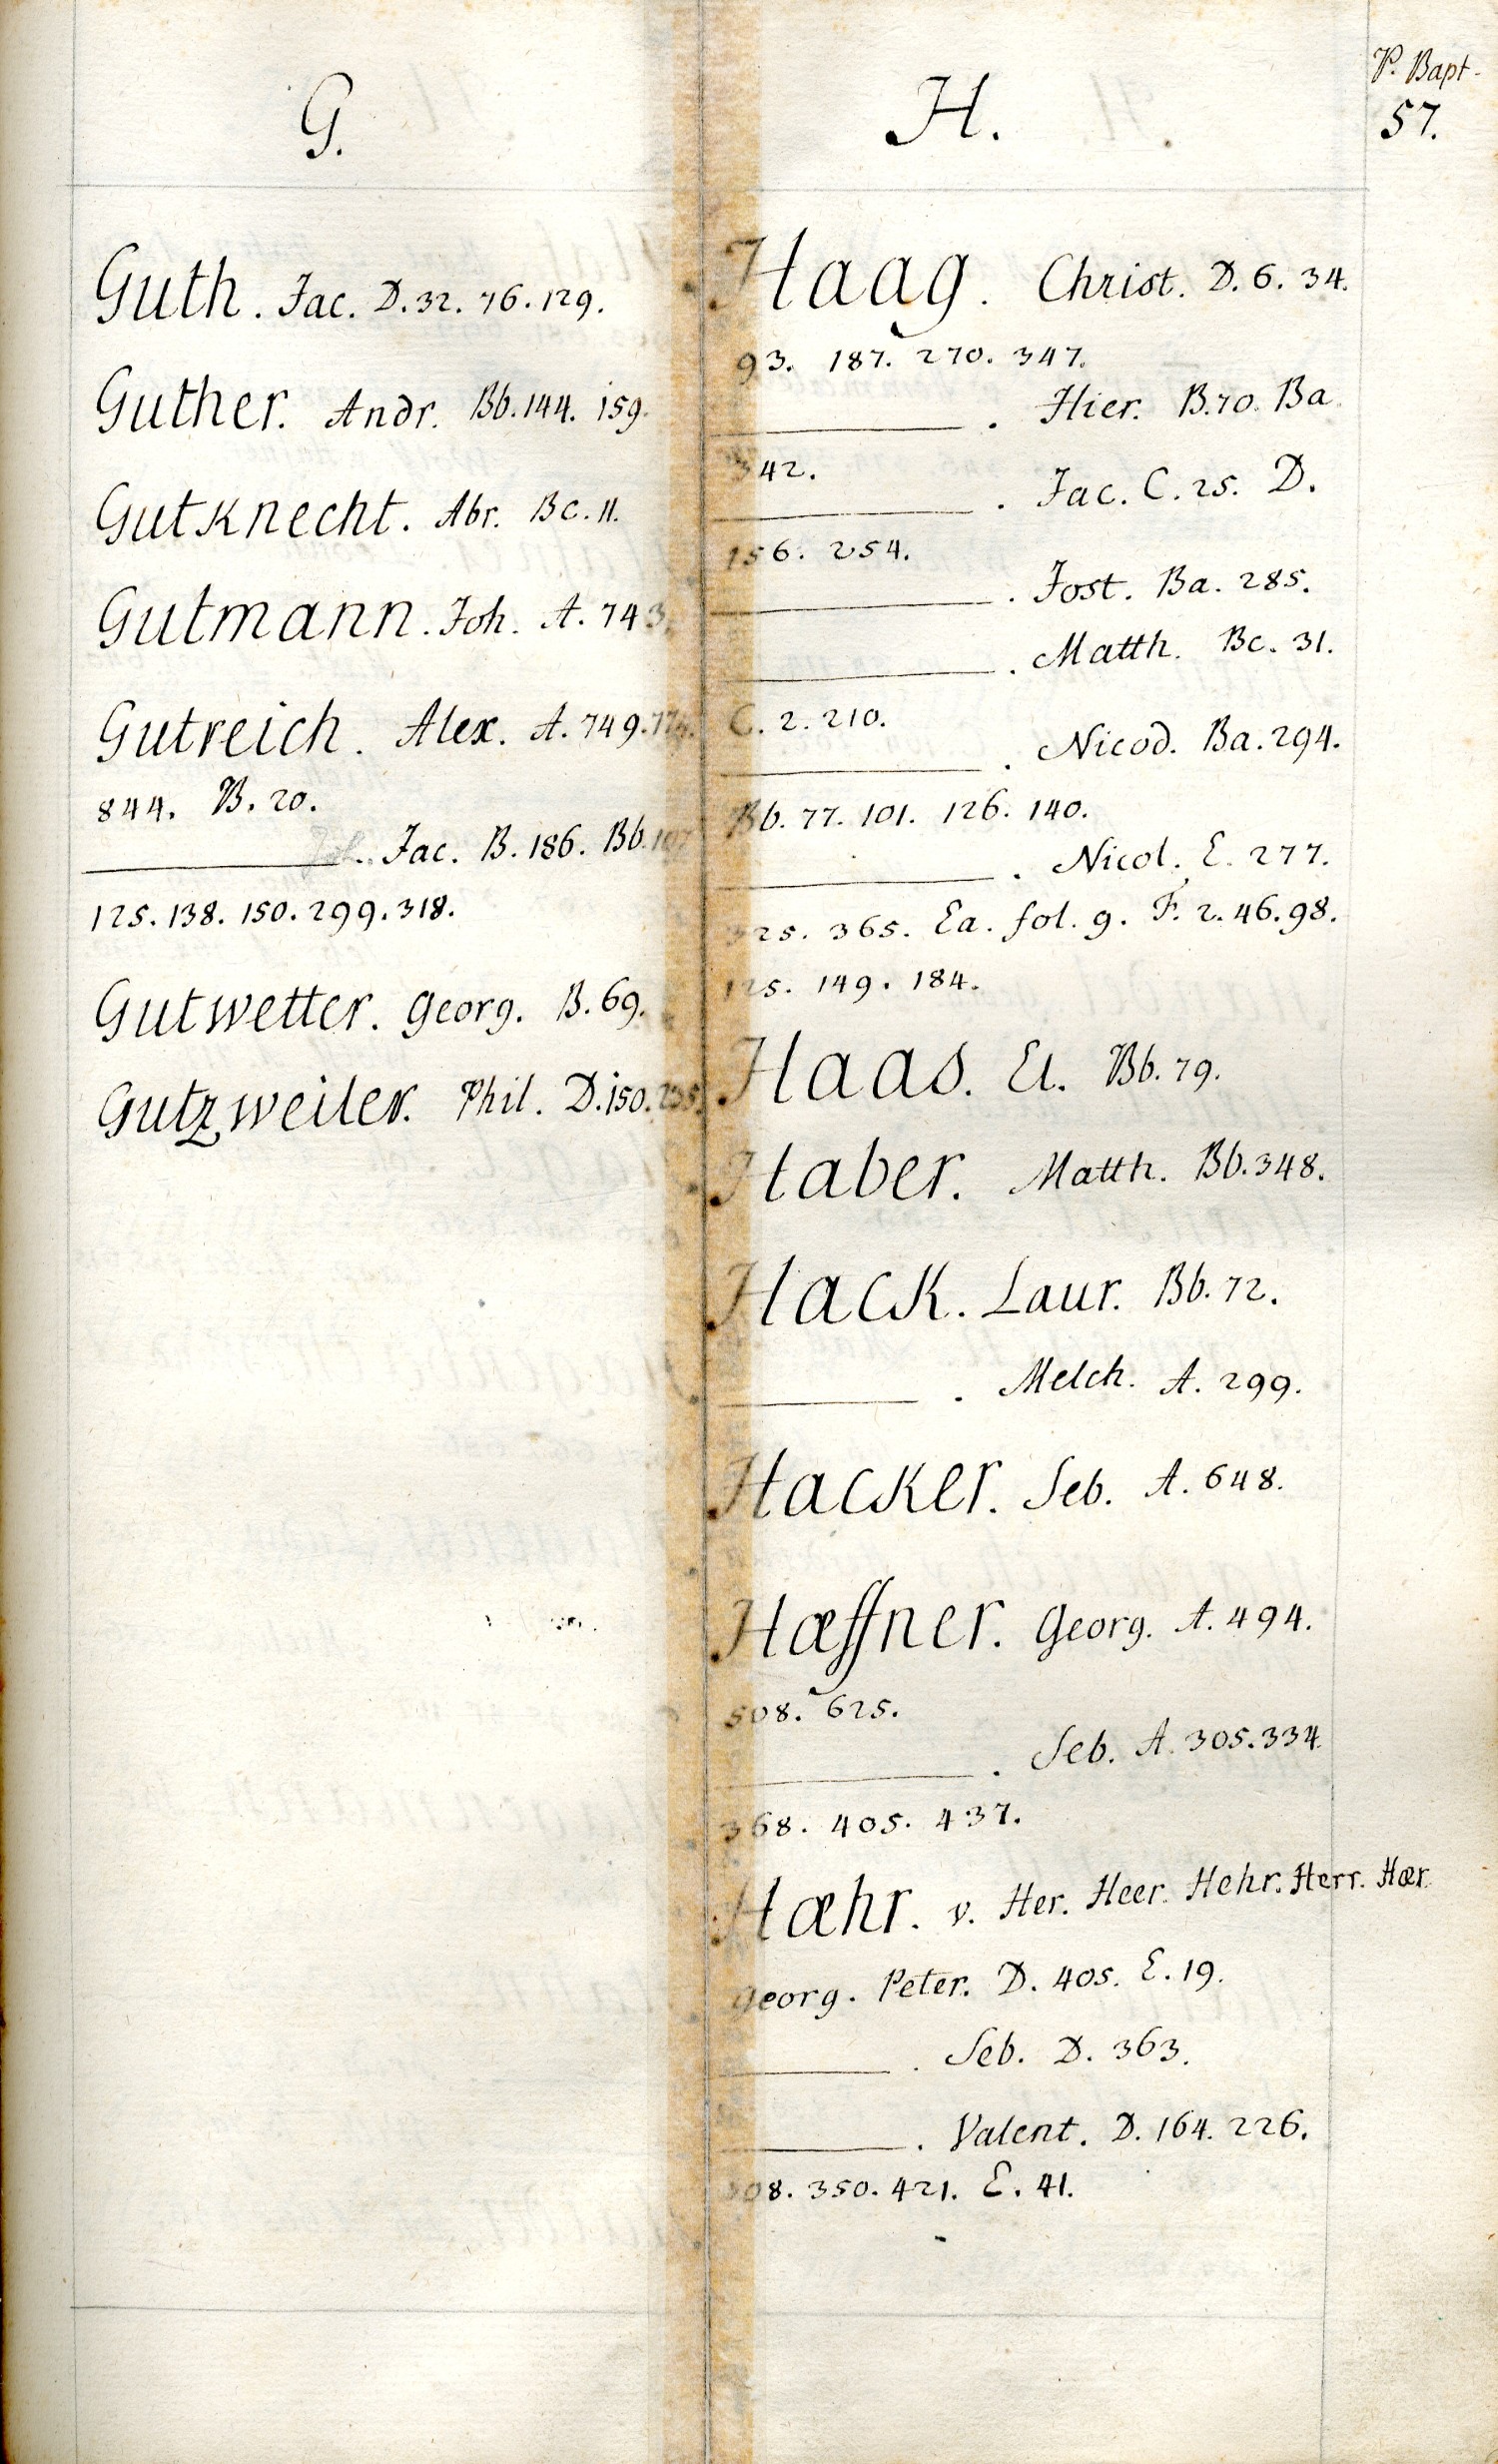 P. Bapt.
57.
G.
Guth. Jac. D. 32. 76. 129.
Guther. Andr. Bb. 144. 159.
Gutknecht. Abr. Bc. 11.
Gutmann. Joh. A. 743.
Gutreich. Alex. A. 749.
844. B. 20.
Jac. B. 186. Bb. 107
125. 138. 150. 299. 318.
Gutwetter. Georg. B. 69.
Gutzweiler. Phil. D. 150. 235.
H.
Haag. Christ. D. 6. 34.
93. 187. 270. 347.
Hier. B. 70. Ba.
342.
Jac. C. 25. D.
156. 254.
Jost. Ba. 285.
Matth. Bc. 31.
C. 2. 210.
Nicod. Ba. 294.
Bb. 77. 101. 126. 140.
Nicol. E. 277.
325. 365. Ea. fol. 9. F. 2. 46. 98.
125. 149. 184.
Haas. El. Bb. 79.
Haber. Matth. Bb. 348.
Hack. Laur. Bb. 72.
Melch. A. 299.
Hacker. Seb. A. 648.
Hæffner. Georg. A. 494.
508. 625.
Seb. A. 305. 334.
368. 405. 437.
Hæhr. v. Her. Heer. Hehr. Herr. Hær.
Georg. Peter. D. 405. E. 19.
Seb. D. 363.
Valent. D. 164. 226.
350. 421. E. 41.